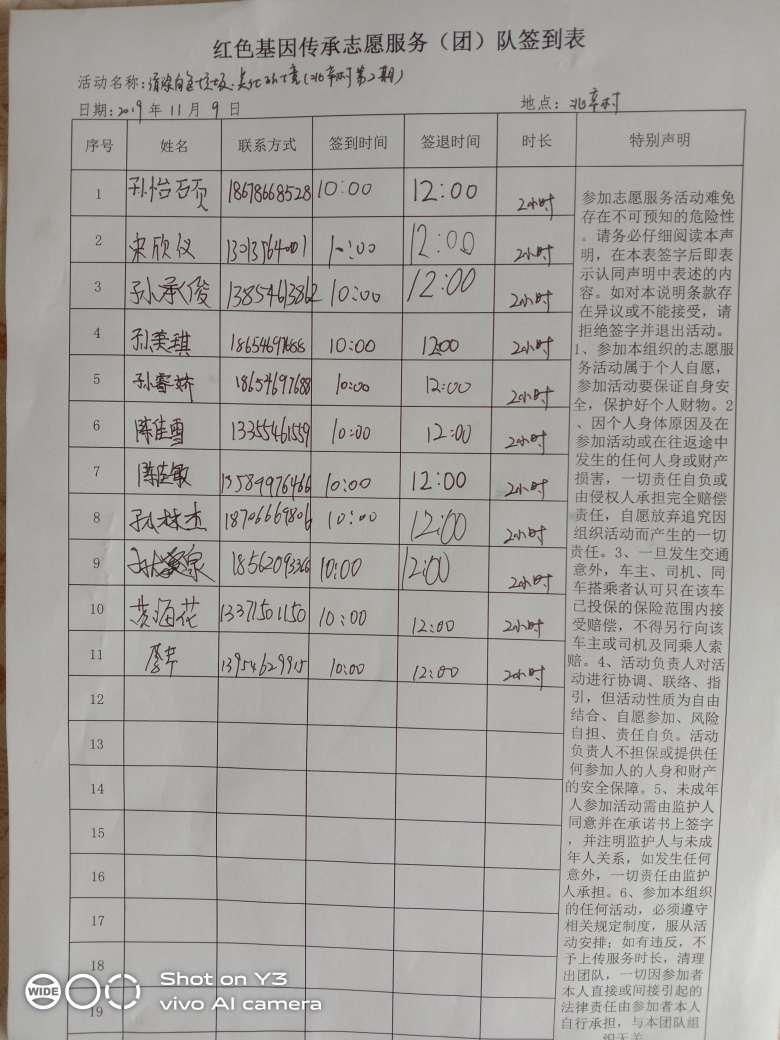 红色基因传承志愿服务（团）队签到表
活动名称：清除白色垃圾、美化环境（北辛村第2期）
日期：2019年11月9日 地点：北辛村
序号 姓名 联系方式 签到时间 签退时间 时长 特别声明
1 孙怡 18678668528 10:00 12:00 2小时
2 宋欣仪 13013564001 10:00 12:00 2小时
3 孙承俊 13854613862 10:00 12:00 2小时
4 孙美琪 10:00 12:00 2小时
5 孙睿娇 18654697688 10:00 12:00 2小时
6 陈佳雪 13355461559 10:00 12:00 2小时
7 陈佳敏 13589976466 10:00 12:00 2小时
8 孙林杰 18706669806 10:00 12:00 2小时
9 18562093366 10:00 12:00 2小时
10 黄海花 13371501150 10:00 12:00 2小时
11 13954629915 10:00 12:00 2小时
12
13
14
15
16
17
18
19
参加志愿服务活动难免
存在不可预知的危险性
。请务必仔细阅读本声
明，在本表签字后即表
示认同声明中表述的内
容。如对本说明条款存
在异议或不能接受，请
拒绝签字并退出活动。
1、参加本组织的志愿服
务活动属于个人自愿，
参加活动要保证自身安
全，保护好个人财物。2
、因个人身体原因及在
参加活动或在往返途中
发生的任何人身或财产
损害，一切责任自负或
由侵权人承担完全赔偿
责任，自愿放弃追究因
组织活动而产生的一切
责任。3、一旦发生交通
意外，车主、司机、同
车搭乘者认可只在该车
已投保的保险范围内接
受赔偿，不得另行向该
车主或司机及同乘人索
赔。4、活动负责人对活
动进行协调、联络、指
引，但活动性质为自由
结合、自愿参加、风险
自担、责任自负。活动
负责人不担保或提供任
何参加人的人身和财产
的安全保障。5、未成年
人参加活动需由监护人
同意并在承诺书上签字
，并注明监护人与未成
年人关系，如发生任何
意外，一切责任由监护
人承担。6、参加本组织
的任何活动，必须遵守
相关规定制度，服从活
动安排；如有违反，不
予上传服务时长，清理
出团队，一切因参加者
本人直接或间接引起的
法律责任由参加者本人
自行承担，与本团队组
织无关
WIDE
Shot on Y3
vivo AI camera